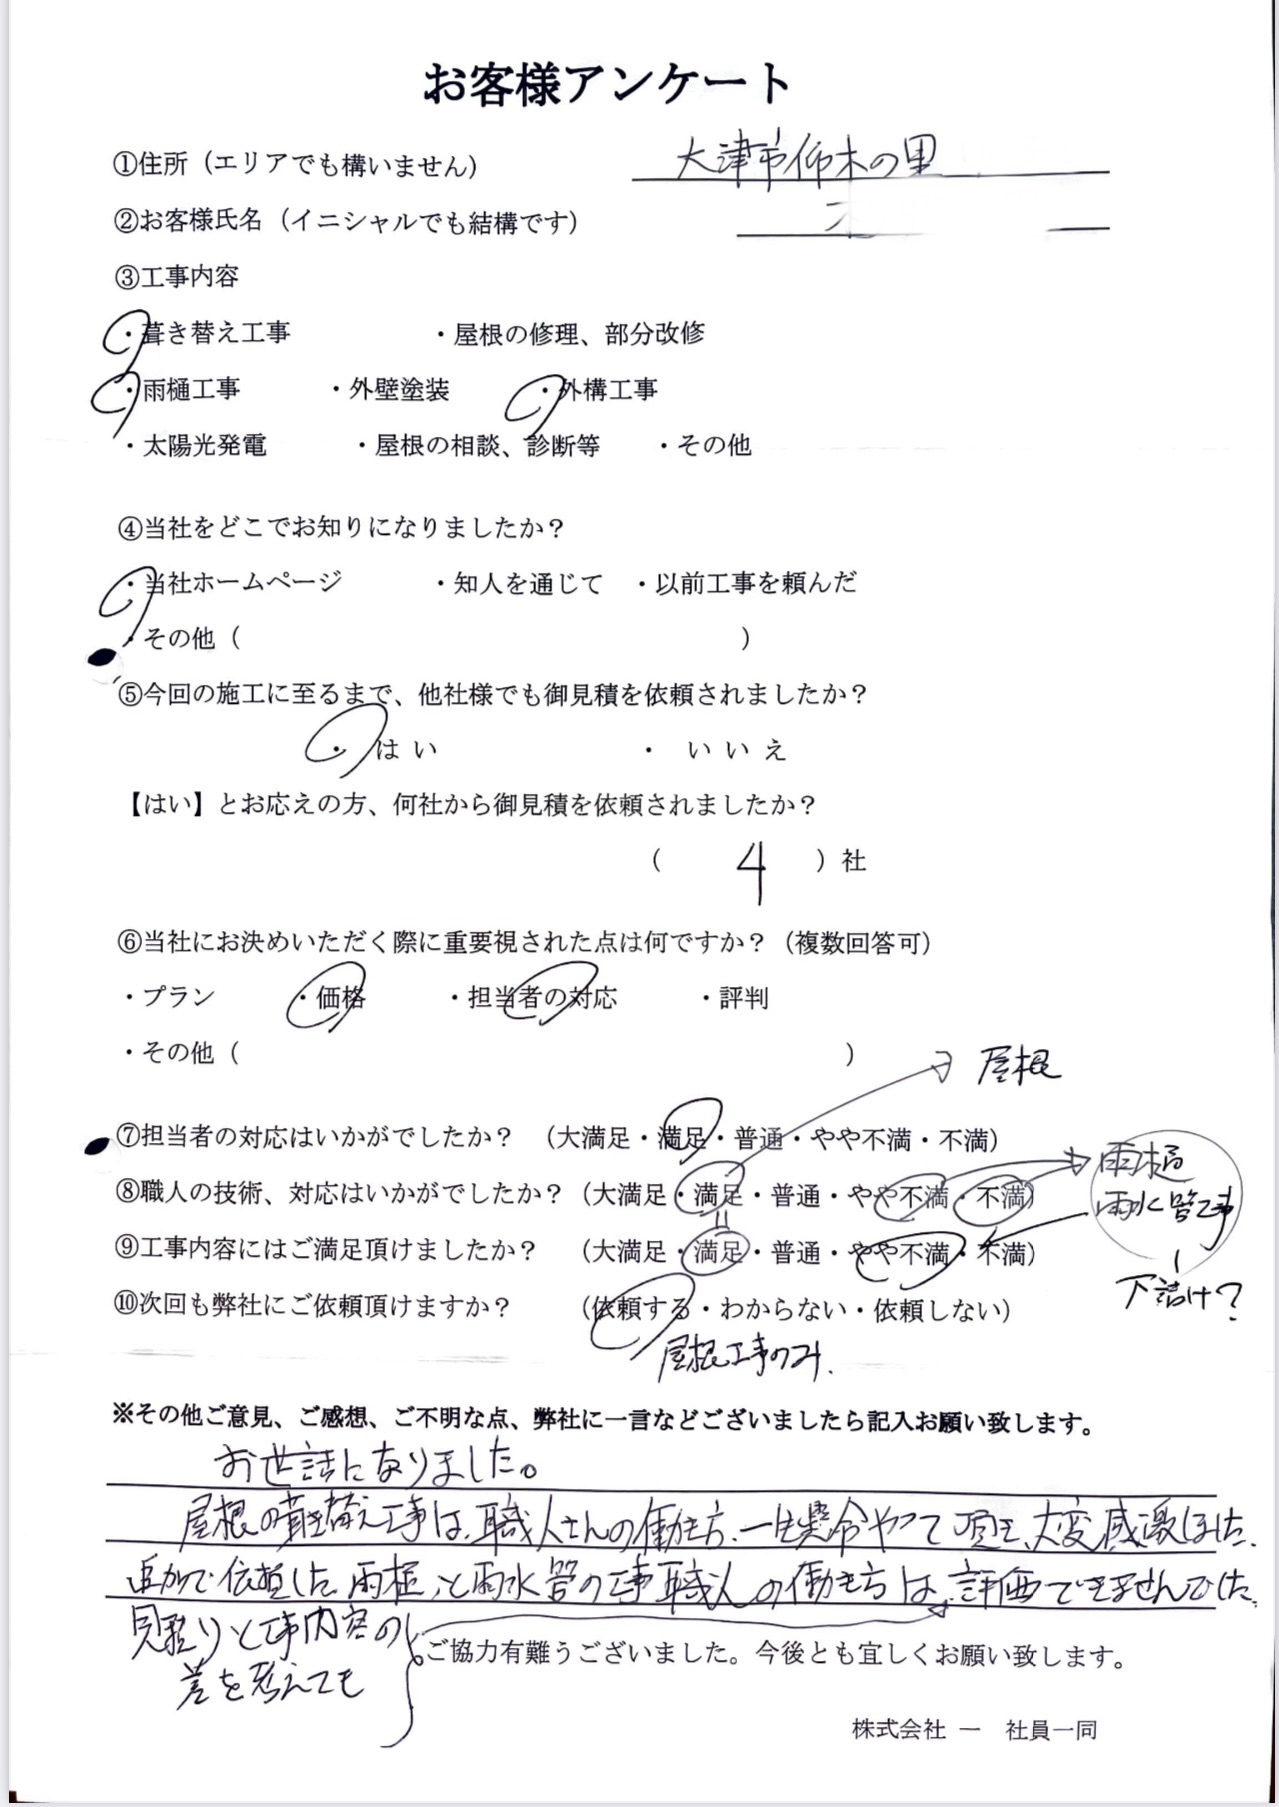 お客様アンケート
①住所（エリアでも構いません） 大津市仰木の里
②お客様氏名（イニシャルでも結構です）
③工事内容
・葺き替え工事 ・屋根の修理、部分改修
・雨樋工事 ・外壁塗装 ・外構工事
・太陽光発電 ・屋根の相談、診断等 ・その他
④当社をどこでお知りになりましたか？
・当社ホームページ ・知人を通じて ・以前工事を頼んだ
・その他（ ）
⑤今回の施工に至るまで、他社様でも御見積を依頼されましたか？
・ はい ・ いいえ
【はい】とお応えの方、何社から御見積を依頼されましたか？
（ 4 ）社
⑥当社にお決めいただく際に重要視された点は何ですか？（複数回答可）
・プラン ・価格 ・担当者の対応 ・評判
・その他（ ）
屋根
⑦担当者の対応はいかがでしたか？ （大満足・満足・普通・やや不満・不満）
雨樋
⑧職人の技術、対応はいかがでしたか？（大満足・満足・普通・やや不満・不満）
雨水管工事
⑨工事内容にはご満足頂けましたか？ （大満足・満足・普通・やや不満・不満）
下請け？
⑩次回も弊社にご依頼頂けますか？ （依頼する・わからない・依頼しない）
屋根工事のみ.
※その他ご意見、ご感想、ご不明な点、弊社に一言などございましたら記入お願い致します。
お世話になりました。
屋根の葺き替え工事は、職人さんの働き方、一生懸命やって頂き、大変感激しました、
追加で依頼した雨樋と雨水管の工事職人の働き方は、評価できませんでした、
見積りと工事内容の
差を考えても
ご協力有難うございました。今後とも宜しくお願い致します。
株式会社 一 社員一同